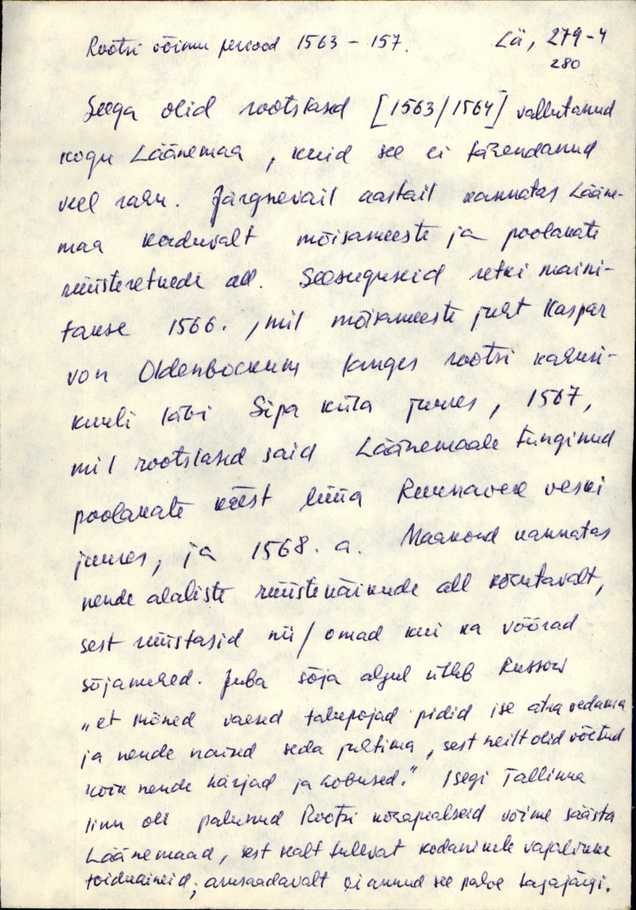 Rootsi võimu periood 1563 - 157.
Lä, 279-4
280
Seega olid rootslased [1563/1564] vallutanud
kogu Läänemaa, kuid see ei tähendanud
veel rahu. Järgnevail aastail kannatas Lääne-
maa korduvalt mõisameeste ja poolakate
rüüsteretkede all. Seesuguseid retki maini-
takse 1566., mil mõisameeste juht Kaspar
von Oldenbockum tungis rootsi kahuri-
kuuli läbi Sipa küla juures, 1567,
mil rootslased said Läänemaale tunginud
poolakate käest lüüa Runnavere veski
juures, ja 1568. a. Maakond kannatas
nende alaliste rüüstekäikude all kohutavalt,
sest rüüstasid nii/omad kui ka võõrad
sõjamehed. Juba sõja algul ütleb Russow
„et mõned vaesed talupojad pidid ise atra vedama
ja nende naised seda juhtima, sest neilt olid võetud
kõik nende härjad ja hobused." Isegi Tallinna
linn oli palunud Rootsi körapealseid võimu säästa
Läänemaad, sest sealt tulevat kodanikele vajalikke
toiduaineid; arusaadavalt ei annud see palve tagajärgi.